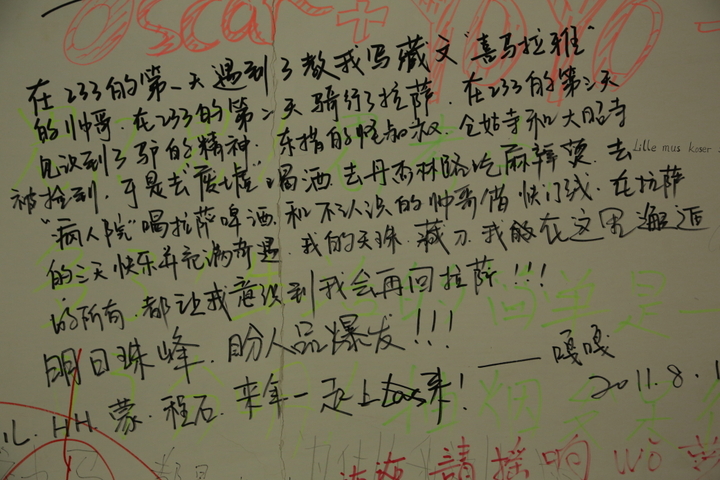 oscar + YOYO
在233的第一天遇到了教我写藏文"喜马拉雅"
的帅哥.在233的第二天骑行了拉萨.在233的第三天
见识到了驴的精神.东措的怪叔叔.仓姑寺和大昭寺
被捡到.于是去"废墟"喝酒.去丹杰林路吃麻辣烫.去
Lille mus koser
"病人院"喝拉萨啤酒.和不认识的帅哥借快门线.在拉萨
的三天快乐并充满奇遇.我的天珠.藏刀.我能在这里邂逅
的所有.都让我意识到我会再回拉萨!!!
明日珠峰.盼人品爆发!!!
——嘎嘎
2011.8.1
儿.HH.蒙.程石.来年一起上路来!
請摇响 wǒ